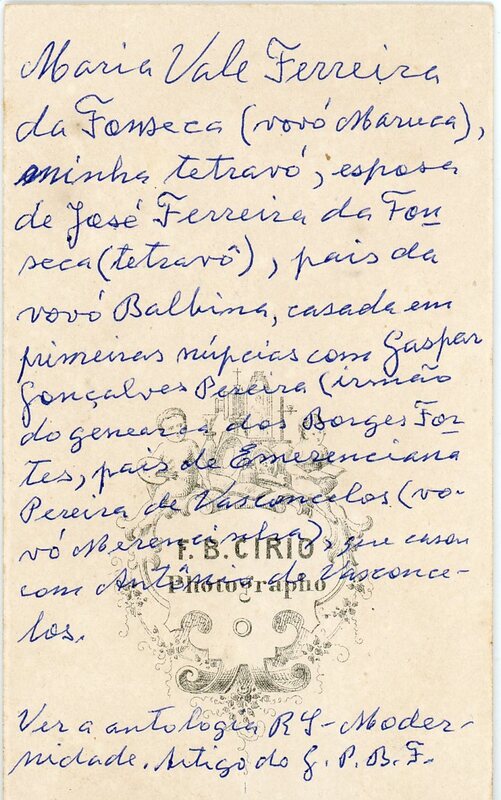 Maria Vale Ferreira
da Fonseca (vovó Maruca),
minha tetravó, esposa
de José Ferreira da Fon
seca (tetravô), pais da
vovó Balbina, casada em
primeiras núpcias com Gaspar
Gonçalves Pereira (irmão
do genearca dos Borges For
tes, pais de Emerenciana
Pereira de Vasconcelos (vo-
vó Merencinha), que casou
F. B. CIRIO
com Antônio de Vasconce-
Photographo
los.
Ver a antologia RS-Moder-
nidade. Artigo do G. P. B. F.